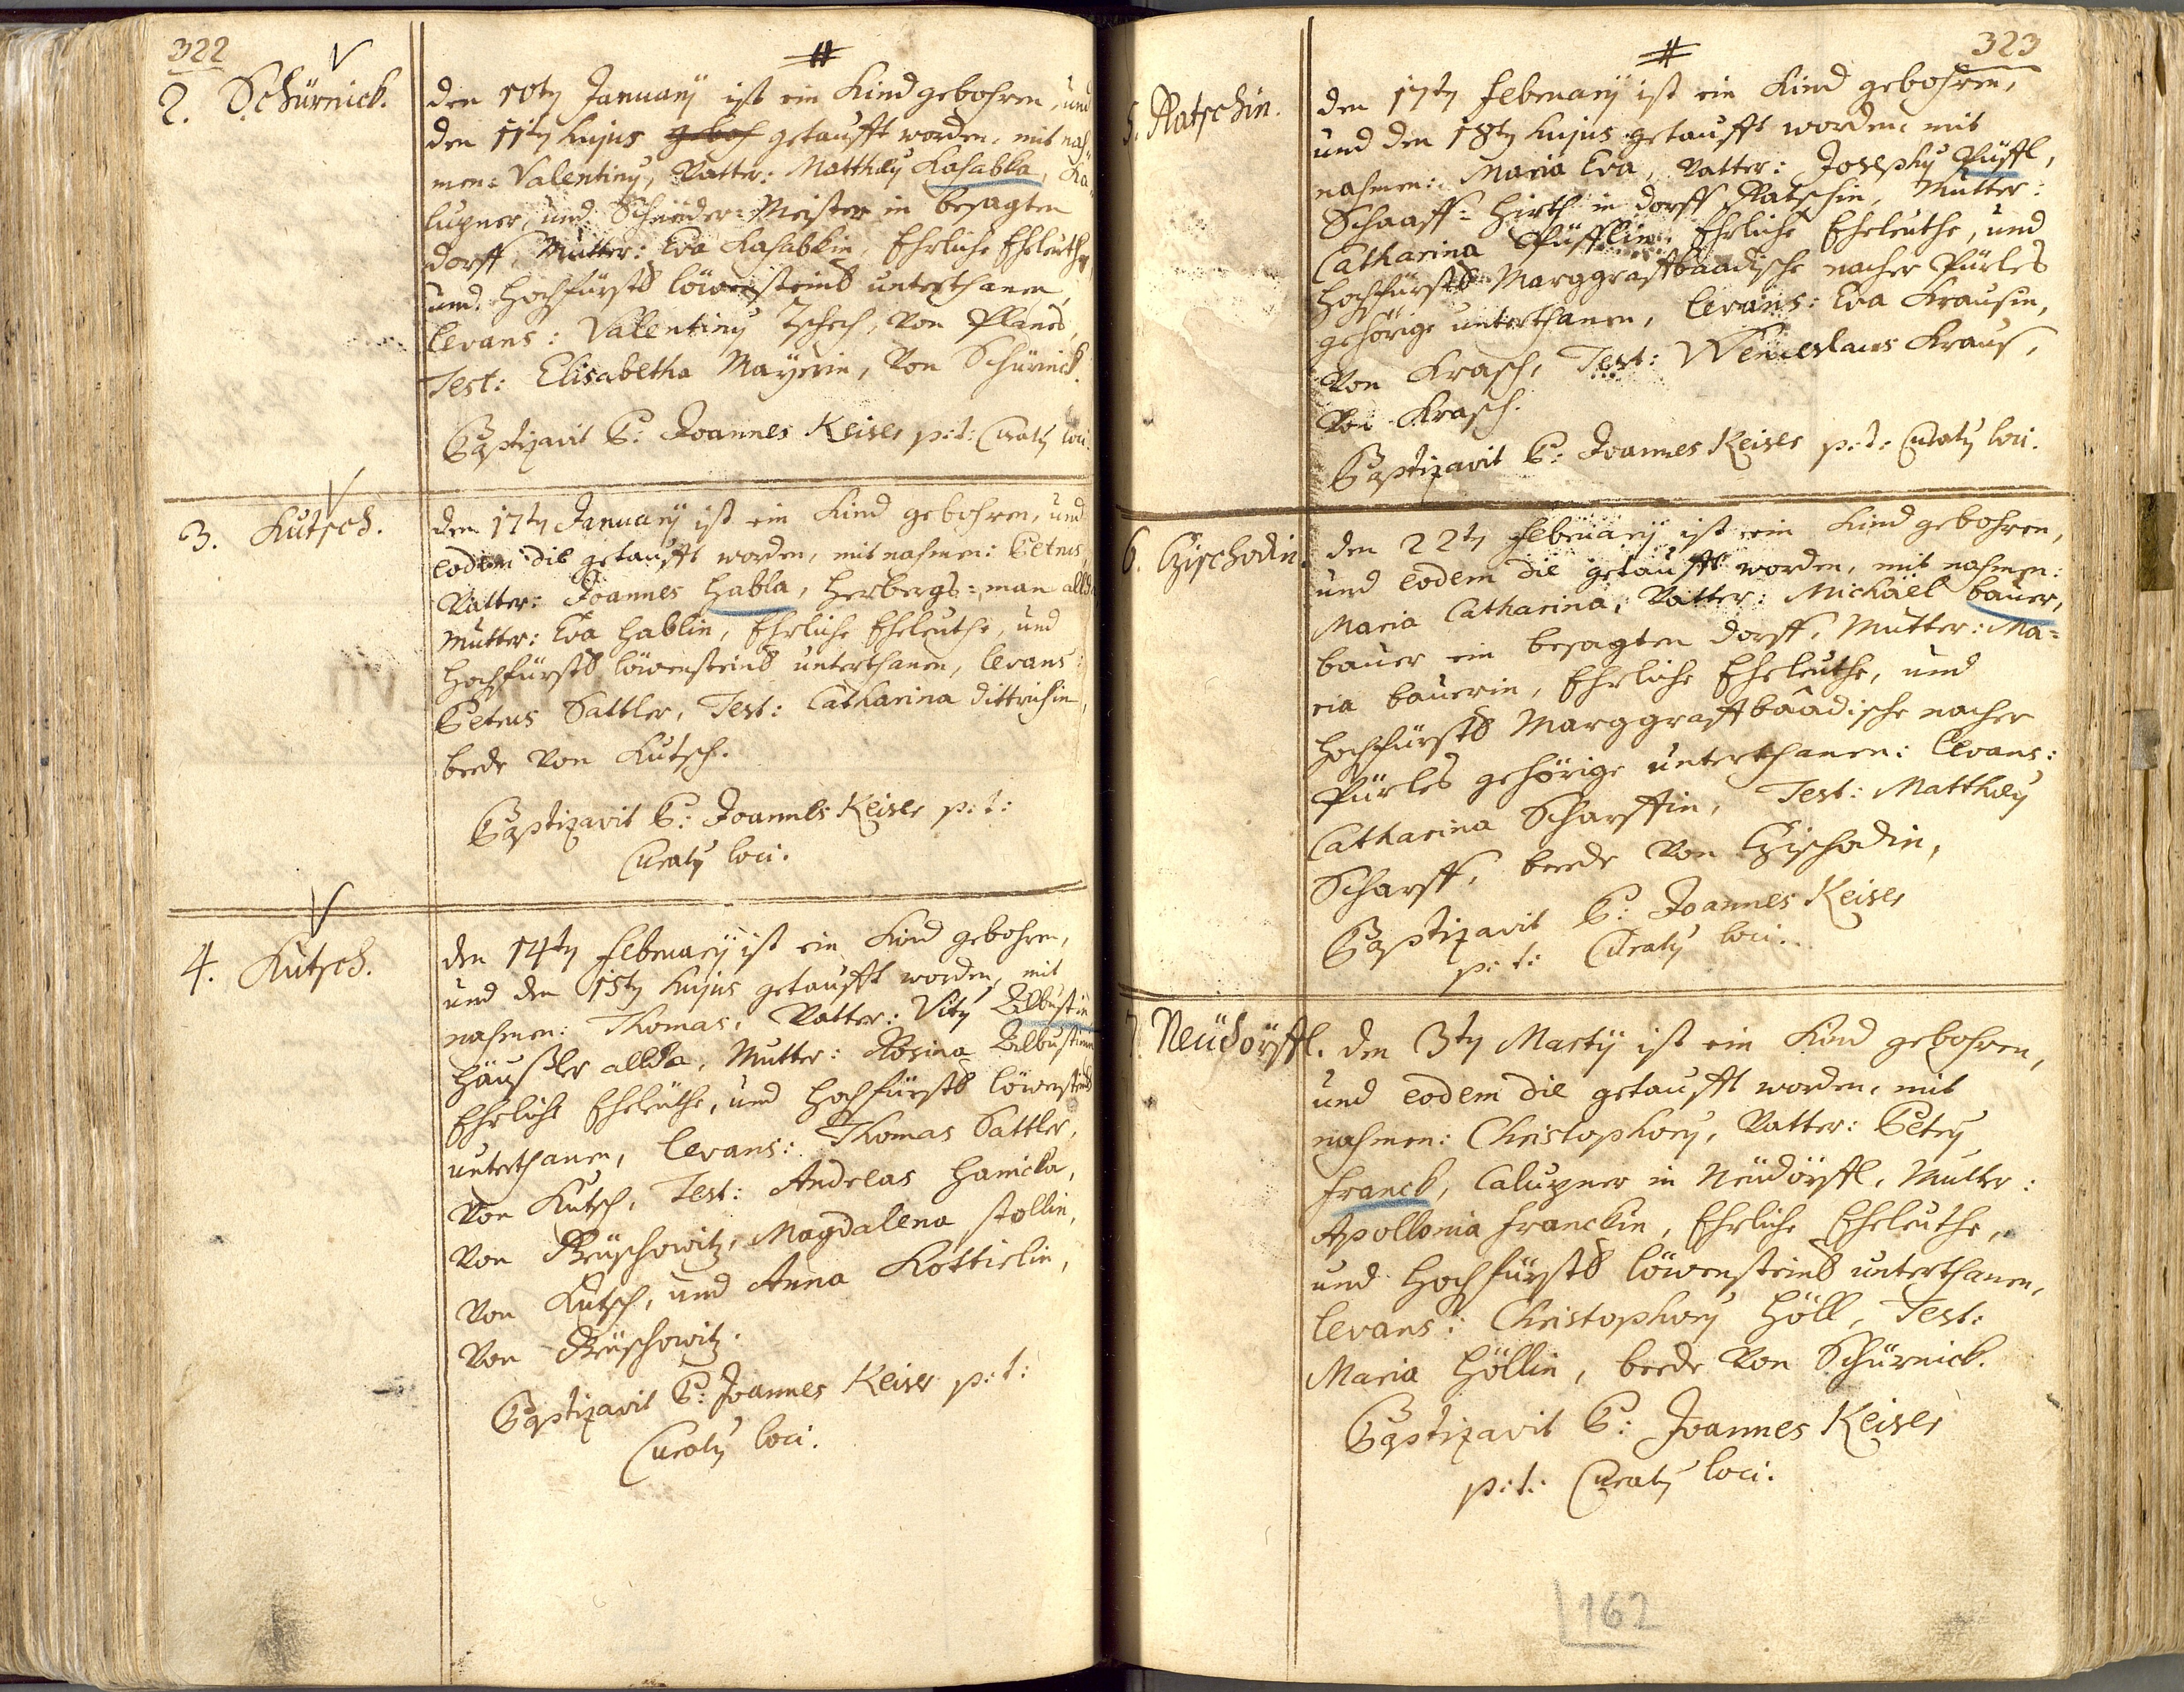 322
2. Schürnick.
den 10ty Januarij ist ein Kind gebohren, und
den 11ty hujus geboh getaufft worden, mit nah-
men: Valentinus, Vatter: Matthæus Kasabka, Ka-
lupner, und Schneider-Meister in besagten
dorff, Mutter: Eva Kasabkin, Ehrliche Eheleuthe,
und hochfürstl löwensteinl unterthanen,
Levans: Valentinus Tschech, von Planes,
Test: Elisabetha Mayerin, von Schürnick.
Baptizavit P: Joannes Keiser p: t: Curatus loci.
3. Kutsch.
den 17ty Januarij ist ein Kind gebohren, und
eodem die getaufft worden, mit nahmen: Petrus,
Vatter: Joannes Habla, Herbergs-man allda,
Mutter: Eva Hablin, Ehrliche Eheleuthe, und
hochfürstl löwensteinl unterthanen, Levans:
Petrus Sattler, Test: Catharina Dittrichin,
beede von Kutsch.
Baptizavit P: Joannes Keiser p: t:
Curatus loci.
4. Kutsch.
den 14ty Februarij ist ein Kind gebohren,
und den 15ty hujus getaufft worden, mit
nahmen: Thomas, Vatter: Vitus
Häußler allda, Mutter: Rosina
Ehrliche Eheleuthe, und hochfürstl löwensteinl
unterthanen, Levans: Thomas Sattler,
von Kutsch, Test: Andreas Hanicka,
von Reuschowitz, Magdalena Stollin,
von Kutsch, und Anna
von Reuschowitz.
Baptizavit P: Joannes Keiser p: t:
Curatus loci.
323
5. Ratschin.
den 17ty Februarij ist ein Kind gebohren,
und den 18ty hujus getaufft worden, mit
nahmen: Maria Eva, Vatter: Josephus Püffl,
Schaaff-Hirth in dorff Ratschin, Mutter:
Catharina Püfflin, Ehrliche Eheleuthe, und
hochfürstl Marggraffbaadische nacher Pürles
gehörige unterthanen, Levans: Eva Krausin,
von Krasch, Test: Wenceslaus Kraus,
von Krasch.
Baptizavit P: Joannes Keiser p: t: Curatus loci.
6. Czischodin.
den 22ty Februarij ist ein Kind gebohren,
und eodem die getaufft worden, mit nahmen:
Maria Catharina, Vatter: Michäel bauer,
bauer in besagten dorff, Mutter: Ma-
ria bauerin, Ehrliche Eheleuthe, und
hochfürstl Marggraffbaadische nacher
Pürles gehörige unterthanen: Levans:
Catharina Scharffin, Test: Matthæus
Scharff, beede von Czischodin,
Baptizavit P: Joannes Keiser
p: t: Curatus loci.
7. Neudörffl.
den 3ty Martij ist ein Kind gebohren,
und eodem die getaufft worden, mit
nahmen: Christophorus, Vatter: Petrus
Franck, Calupner in Neudörffl, Mutter:
Apollonia Franckin, Ehrliche Eheleuthe,
und hochfürstl löwensteinl unterthanen,
Levans: Christophorus Höll, Test:
Maria Höllin, beede von Schürnick.
Baptizavit P: Joannes Keiser
p: t: Curatus loci.
162